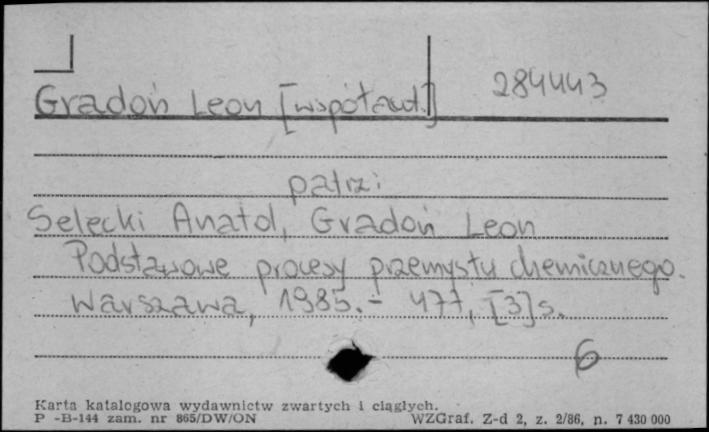 284443
Gradoń Leon [współaut.]
patrz:
Selecki Anatol, Gradoń Leon
Podstawowe procesy przemysłu chemicznego.
Warszawa, 1985.- 477, [3]s.
6
Karta katalogowa wydawnictw zwartych i ciągłych.
P -B-144 zam. nr 865/DW/ON WZGraf. Z-d 2, z. 2/86, n. 7 430 000